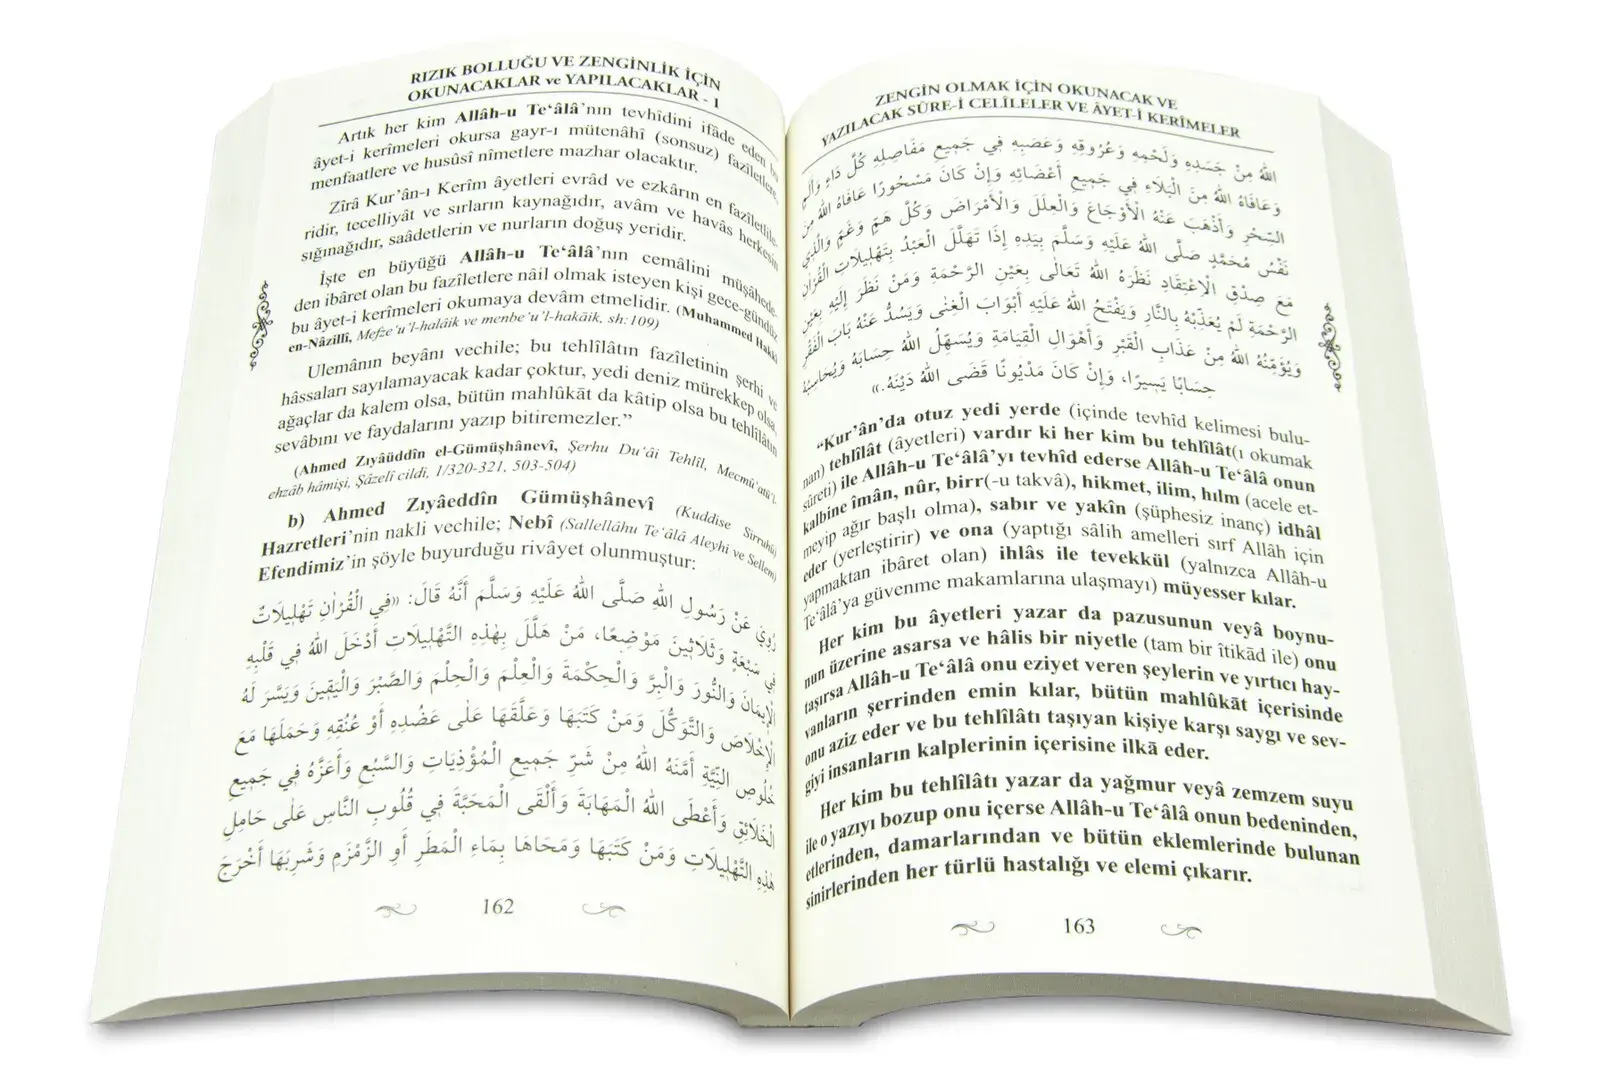 RIZIK BOLLUĞU VE ZENGİNLİK İÇİN
OKUNACAKLAR ve YAPILACAKLAR - I
Artık her kim Allâh-u Te‘âlâ’nın tevhîdini ifâde eden bu
âyet-i kerîmeleri okursa gayr-ı mütenâhî (sonsuz) fazîletlere,
menfaatlere ve husûsî nîmetlere mazhar olacaktır.
Zîrâ Kur’ân-ı Kerîm âyetleri evrâd ve ezkârın en fazîletlile-
ridir, tecelliyât ve sırların kaynağıdır, avâm ve havâs herkesin
sığınağıdır, saâdetlerin ve nurların doğuş yeridir.
İşte en büyüğü Allâh-u Te‘âlâ’nın cemâlini müşâhede-
den ibâret olan bu fazîletlere nâil olmak isteyen kişi gece-gündüz
bu âyet-i kerîmeleri okumaya devâm etmelidir. (Muhammed Hakkî
en-Nâzillî, Mefze‘u’l-halâik ve menbe‘u’l-hakâik, sh:109)
Ulemânın beyânı vechile; bu tehlîlâtın fazîletinin şerhi ve
hâssaları sayılamayacak kadar çoktur, yedi deniz mürekkep olsa,
ağaçlar da kalem olsa, bütün mahlûkât da kâtip olsa bu tehlîlâtın
sevâbını ve faydalarını yazıp bitiremezler.”
(Ahmed Zıyâüddîn el-Gümüşhânevî, Şerhu Du‘âi Tehlîl, Mecmû‘atü’l-
ehzâb hâmişi, Şâzelî cildi, 1/320-321, 503-504)
b) Ahmed Zıyâeddîn Gümüşhânevî (Kuddise Sirruhû)
Hazretleri’nin nakli vechile; Nebî (Sallellâhu Te‘âlâ Aleyhi ve Sellem)
Efendimiz’in şöyle buyurduğu rivâyet olunmuştur:
رُوِيَ عَنْ رَسُولِ اللهِ صَلَّى اللهُ عَلَيْهِ وَسَلَّمَ أَنَّهُ قَالَ: «فِي الْقُرْاٰنِ تَهْلِيلَاتٌ
فِي سَبْعَةٍ وَثَلَاثِينَ مَوْضِعًا، مَنْ هَلَّلَ بِهٰذِهِ التَّهْلِيلَاتِ أَدْخَلَ اللهُ فِي قَلْبِهِ
الْإِيمَانَ وَالنُّورَ وَالْبِرَّ وَالْحِكْمَةَ وَالْعِلْمَ وَالْحِلْمَ وَالصَّبْرَ وَالْيَقِينَ وَيَسَّرَ لَهُ
الْإِخْلَاصَ وَالتَّوَكُّلَ وَمَنْ كَتَبَهَا وَعَلَّقَهَا عَلٰى عَضُدِهِ أَوْ عُنُقِهِ وَحَمَلَهَا مَعَ
خُلُوصِ النِّيَّةِ أَمَّنَهُ اللهُ مِنْ شَرِّ جَمِيعِ الْمُؤْذِيَاتِ وَالسَّبُعِ وَأَعَزَّهُ فِي جَمِيعِ
الْخَلَائِقِ وَأَعْطَى اللهُ الْمَهَابَةَ وَأَلْقَى الْمَحَبَّةَ فِي قُلُوبِ النَّاسِ عَلٰى حَامِلِ
هٰذِهِ التَّهْلِيلَاتِ وَمَنْ كَتَبَهَا وَمَحَاهَا بِمَاءِ الْمَطَرِ أَوِ الزَّمْزَمِ وَشَرِبَهَا أَخْرَجَ
162
ZENGİN OLMAK İÇİN OKUNACAK VE
YAZILACAK SÛRE-İ CELÎLELER VE ÂYET-İ KERÎMELER
اللهُ مِنْ جَسَدِهِ وَلَحْمِهِ وَعُرُوقِهِ وَعَصَبِهِ فِي جَمِيعِ مَفَاصِلِهِ كُلَّ دَاءٍ وَأَلَمٍ
وَعَافَاهُ اللهُ مِنَ الْبَلَاءِ فِي جَمِيعِ أَعْضَائِهِ وَإِنْ كَانَ مَسْحُورًا عَافَاهُ اللهُ مِنَ
السِّحْرِ وَأَذْهَبَ عَنْهُ الْأَوْجَاعَ وَالْعِلَلَ وَالْأَمْرَاضَ وَكُلَّ هَمٍّ وَغَمٍّ وَالَّذِي
نَفْسُ مُحَمَّدٍ صَلَّى اللهُ عَلَيْهِ وَسَلَّمَ بِيَدِهِ إِذَا تَهَلَّلَ الْعَبْدُ بِتَهْلِيلَاتِ الْقُرْاٰنِ
مَعَ صِدْقِ الْاِعْتِقَادِ نَظَرَهُ اللهُ تَعَالٰى بِعَيْنِ الرَّحْمَةِ وَمَنْ نَظَرَ إِلَيْهِ بِعَيْنِ
الرَّحْمَةِ لَمْ يُعَذِّبْهُ بِالنَّارِ وَيَفْتَحُ اللهُ عَلَيْهِ أَبْوَابَ الْغِنٰى وَيَسُدُّ عَنْهُ بَابَ الْفَقْرِ
وَيُؤَمِّنُهُ اللهُ مِنْ عَذَابِ الْقَبْرِ وَأَهْوَالِ الْقِيَامَةِ وَيُسَهِّلُ اللهُ حِسَابَهُ وَيُحَاسِبُهُ
حِسَابًا يَسِيرًا، وَإِنْ كَانَ مَدْيُونًا قَضَى اللهُ دَيْنَهُ.»
“Kur’ân’da otuz yedi yerde (içinde tevhîd kelimesi bulu-
nan) tehlîlât (âyetleri) vardır ki her kim bu tehlîlât(ı okumak
sûreti) ile Allâh-u Te‘âlâ’yı tevhîd ederse Allâh-u Te‘âlâ onun
kalbine îmân, nûr, birr(-u takvâ), hikmet, ilim, hılm (acele et-
meyip ağır başlı olma), sabır ve yakîn (şüphesiz inanç) idhâl
eder (yerleştirir) ve ona (yaptığı sâlih amelleri sırf Allâh için
yapmaktan ibâret olan) ihlâs ile tevekkül (yalnızca Allâh-u
Te‘âlâ’ya güvenme makamlarına ulaşmayı) müyesser kılar.
Her kim bu âyetleri yazar da pazusunun veyâ boynu-
nun üzerine asarsa ve hâlis bir niyetle (tam bir îtikâd ile) onu
taşırsa Allâh-u Te‘âlâ onu eziyet veren şeylerin ve yırtıcı hay-
vanların şerrinden emin kılar, bütün mahlûkāt içerisinde
onu aziz eder ve bu tehlîlâtı taşıyan kişiye karşı saygı ve sev-
giyi insanların kalplerinin içerisine ilkā eder.
Her kim bu tehlîlâtı yazar da yağmur veyâ zemzem suyu
ile o yazıyı bozup onu içerse Allâh-u Te‘âlâ onun bedeninden,
etlerinden, damarlarından ve bütün eklemlerinde bulunan
sinirlerinden her türlü hastalığı ve elemi çıkarır.
163